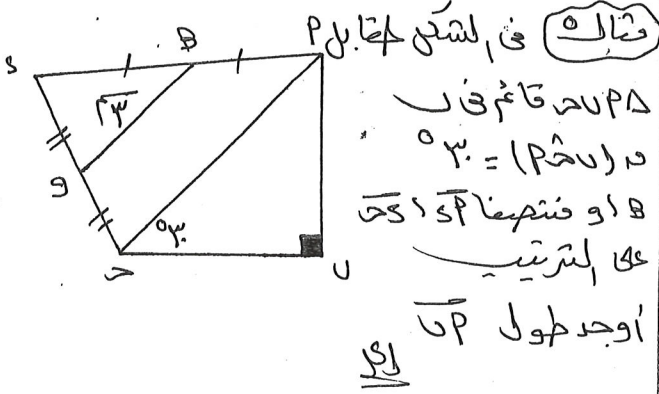 مثال ٥ فى الشكل المقابل
△ أ ب ج قائم فى ب
ق (ب ج^ أ) = ٣٠°
هـ ، و منتصفا أ د ، د ج
على الترتيب
أوجد طول أ ب
الحل
د
هـ
أ
٣م
و
٣٠°
ج
ب